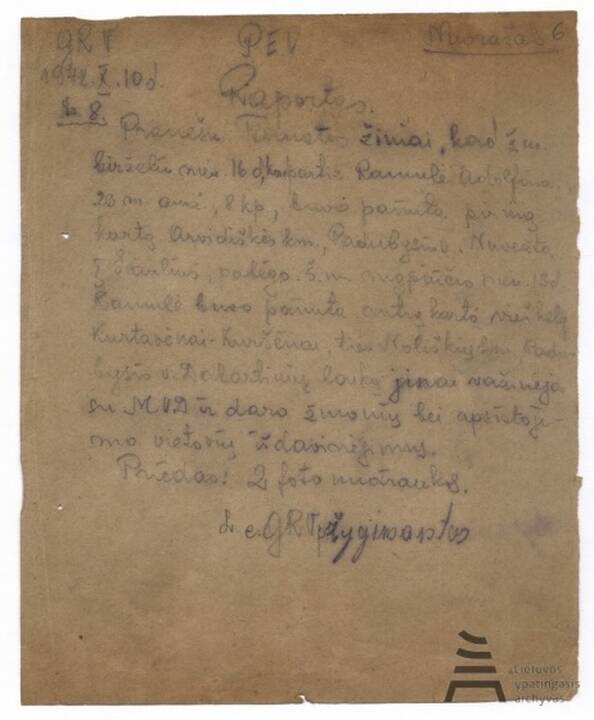 GRV PEV Nuorašas 6
194 X.10 d.
№ 8. Raportas.
Pranešu Tamstos žiniai, kad š.m.
birželio mėn. 16 d. Ramulė Adolfina
23 m. amž., 8 kp., buvo paimta pirmą
kartą Arvidiškės km., Padubysio v. Nuvežta
į Šiaulius, pabėgo. Š.m. rugpiūčio mėn. 13 d
Ramulė buvo paimta antrą kartą vieškely
Kurtavėnai-Kuršėnai, ties km, Padu-
bysio v. Dabartiniu laiku jinai važinėja
su MVD ir daro žmonių bei apsistoji-
mo vietovių išdavinėjimus.
Priedas: 2 foto nuotraukos.
GRV Žygimantas
Lietuvos
ypatingasis
archyvas